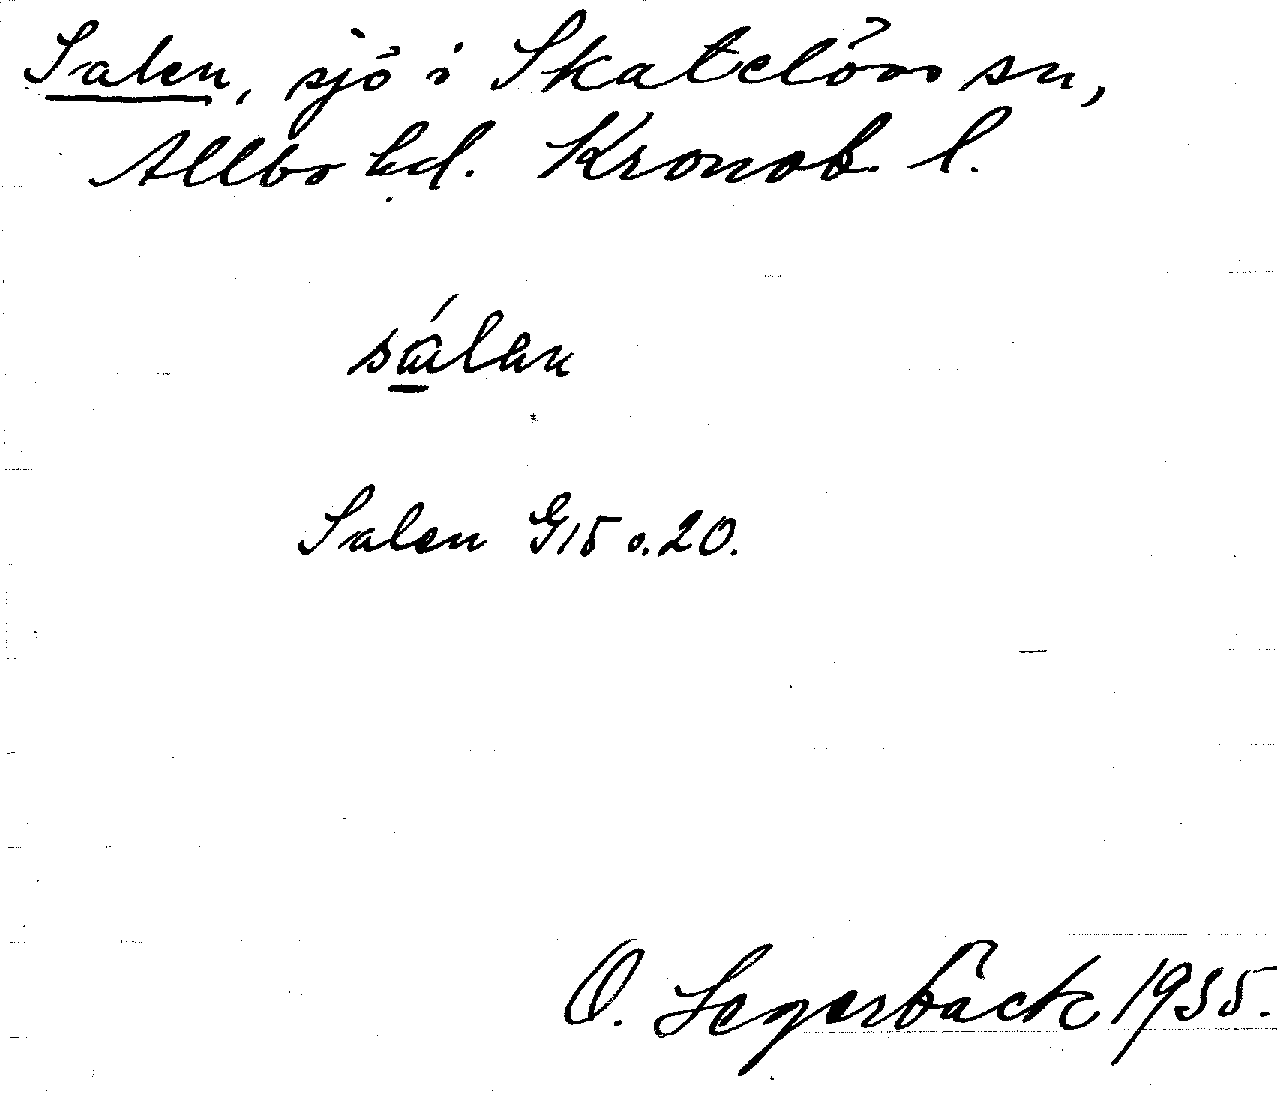 Salen, sjö i Skatelövs sn,
Allbo hd. Kronob. l.
sálen
Salen G15 o. 20.
O. Segerbäck 1935.